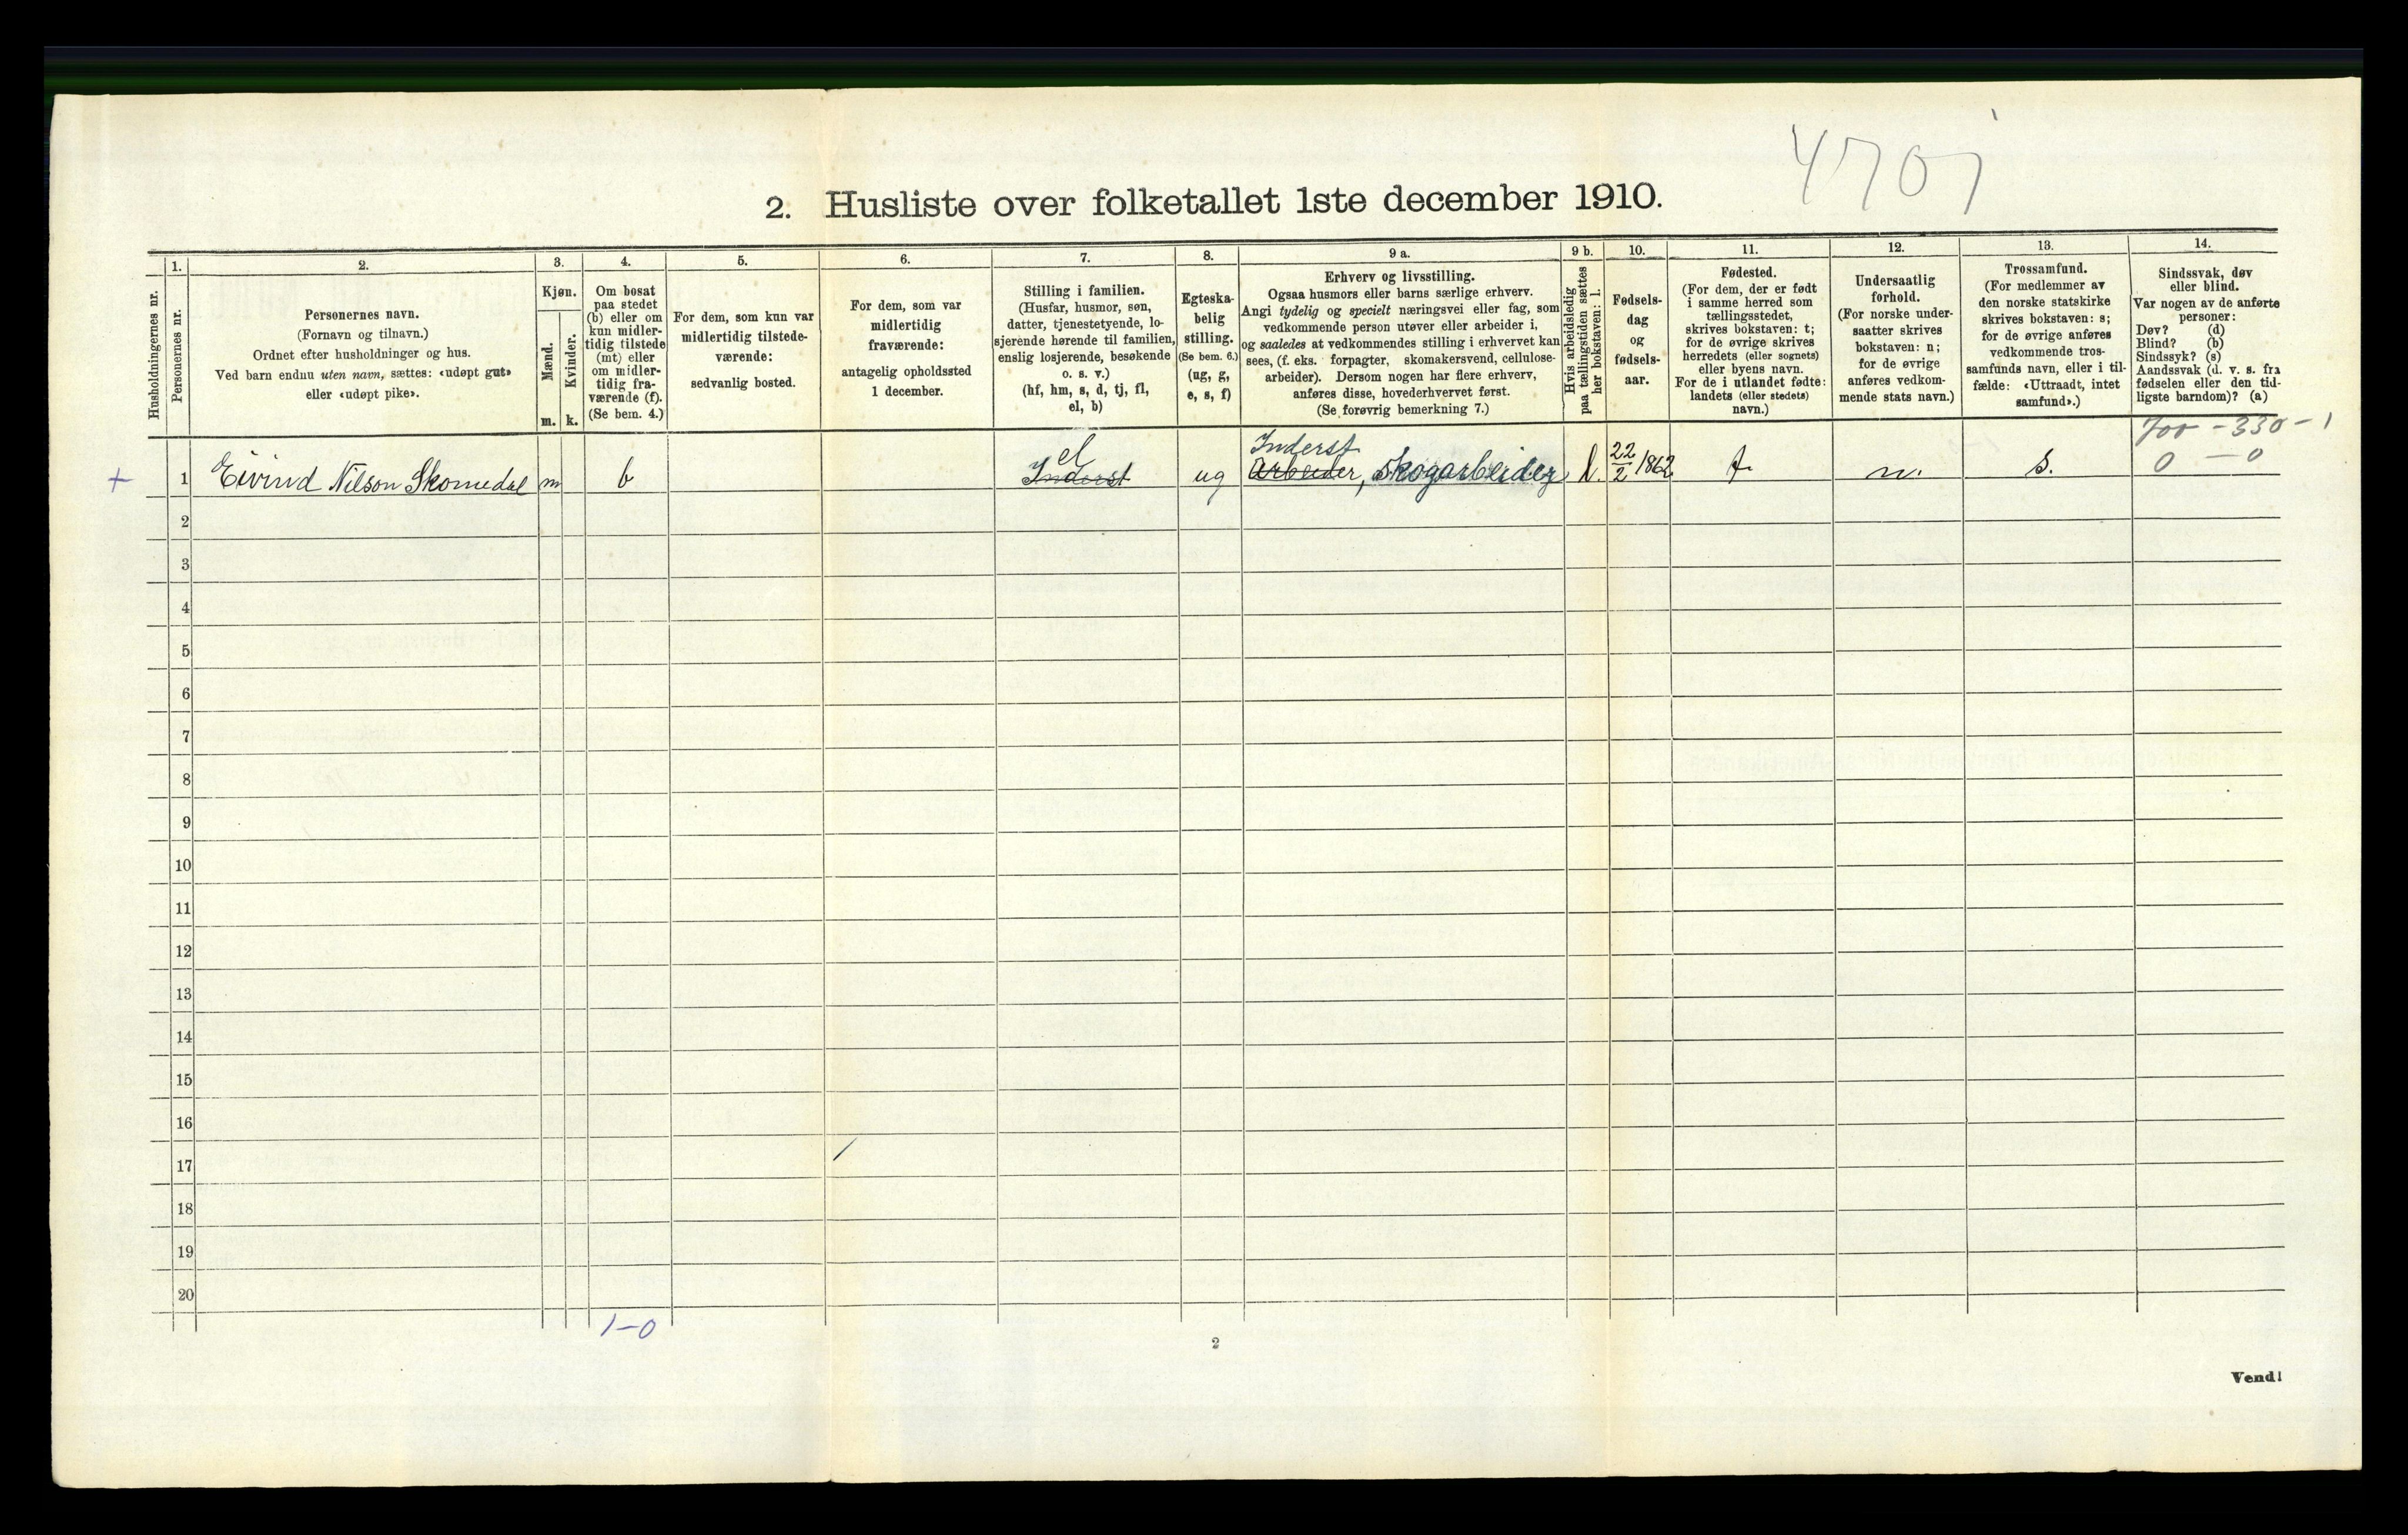 2. Husliste over folketallet 1ste december 1910.
Husholdningernes nr.
1.
Personernes nr.
2.
Personernes navn.
(Fornavn og tilnavn.)
Ordnet efter husholdninger og hus.
Ved barn endnu uten navn, sættes: «udøpt gut»
eller «udøpt pike».
3.
Kjøn.
Mænd.
Kvinder.
m. k.
4.
Om bosat
paa stedet
(b) eller om
kun midler-
tidig tilstede
(mt) eller
om midler-
tidig fra-
værende (f).
(Se bem. 4.)
5.
For dem, som kun var
midlertidig tilstede-
værende:
sedvanlig bosted.
6.
For dem, som var
midlertidig
fraværende:
antagelig opholdssted
1 december.
7.
Stilling i familien.
(Husfar, husmor, søn,
datter, tjenestetyende, lo-
sjerende hørende til familien,
enslig losjerende, besøkende
o. s. v.)
(hf, hm, s, d, tj, fl,
el, b)
8.
Egteska-
belig
stilling.
(Se bem. 6.)
(ug, g,
e, s, f)
9 a.
Erhverv og livsstilling.
Ogsaa husmors eller barns særlige erhverv.
Angi tydelig og specielt næringsvei eller fag, som
vedkommende person utøver eller arbeider i,
og saaledes at vedkommendes stilling i erhvervet kan
sees, (f. eks. forpagter, skomakersvend, cellulose-
arbeider). Dersom nogen har flere erhverv,
anføres disse, hovederhvervet først.
(Se forøvrig bemerkning 7.)
9 b.
Hvis arbeidsledig
paa tællingstiden sættes
her bokstaven: l.
10.
Fødsels-
dag
og
fødsels-
aar.
11.
Fødested.
(For dem, der er født
i samme herred som
tællingsstedet,
skrives bokstaven: t;
for de øvrige skrives
herredets (eller sognets)
eller byens navn.
For de i utlandet fødte:
landets (eller stedets)
navn.)
12.
Undersaatlig
forhold.
(For norske under-
saatter skrives
bokstaven: n;
for de øvrige
anføres vedkom-
mende stats navn.)
13.
Trossamfund.
(For medlemmer av
den norske statskirke
skrives bokstaven: s;
for de øvrige anføres
vedkommende tros-
samfunds navn, eller i til-
fælde: «Uttraadt, intet
samfund».)
14.
Sindssvak, døv
eller blind.
Var nogen av de anførte
personer:
Døv? (d)
Blind? (b)
Sindssyk? (s)
Aandssvak (d. v. s. fra
fødselen eller den tid-
ligste barndom)? (a)
700 - 330 - 1
0 - 0
el Inderst
+ 1 Eivind Nilson Skomedal m b Inderst ug Arbeider, skogarbeider l. 22/2 1862 t n. s.
2
3
4
5
6
7
8
9
10
11
12
13
14
15
16
17
18
19
20
1-0
2
Vend!